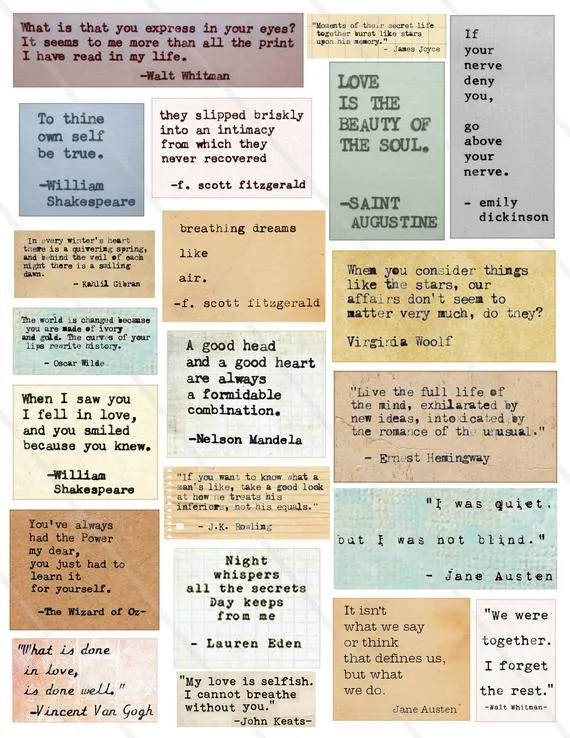 What is that you express in your eyes?
It seems to me more than all the print
I have read in my life.
-Walt Whitman
"Moments of their secret life
together burst like stars
upon his memory."
- James Joyce
If
your
nerve
deny
you,
go
above
your
nerve.
- emily
dickinson
To thine
own self
be true.
-William
Shakespeare
they slipped briskly
into an intimacy
from which they
never recovered
-f. scott fitzgerald
LOVE
IS THE
BEAUTY OF
THE SOUL.
-SAINT
AUGUSTINE
In every winter's heart
there is a quivering spring,
and behind the veil of each
night there is a smiling
dawn.
- Kahlil Gibran
breathing dreams
like
air.
-f. scott fitzgerald
When you consider things
like the stars, our
affairs don't seem to
matter very much, do they?
Virginia Woolf
The world is changed because
you are made of ivory
and gold. The curves of your
lips rewrite history.
- Oscar Wilde
A good head
and a good heart
are always
a formidable
combination.
-Nelson Mandela
"Live the full life of
the mind, exhilarated by
new ideas, intoxicated by
the romance of the unusual."
- Ernest Hemingway
When I saw you
I fell in love,
and you smiled
because you knew.
-William
Shakespeare
"If you want to know what a
man's like, take a good look
at how he treats his
inferiors, not his equals."
- J.K. Rowling
"I was quiet,
but I was not blind."
- Jane Austen
You've always
had the Power
my dear,
you just had to
learn it
for yourself.
-The Wizard of Oz-
Night
whispers
all the secrets
Day keeps
from me
- Lauren Eden
It isn't
what we say
or think
that defines us,
but what
we do.
Jane Austen
"We were
together.
I forget
the rest."
-Walt Whitman-
"What is done
in love,
is done well."
-Vincent Van Gogh
"My love is selfish.
I cannot breathe
without you."
-John Keats-